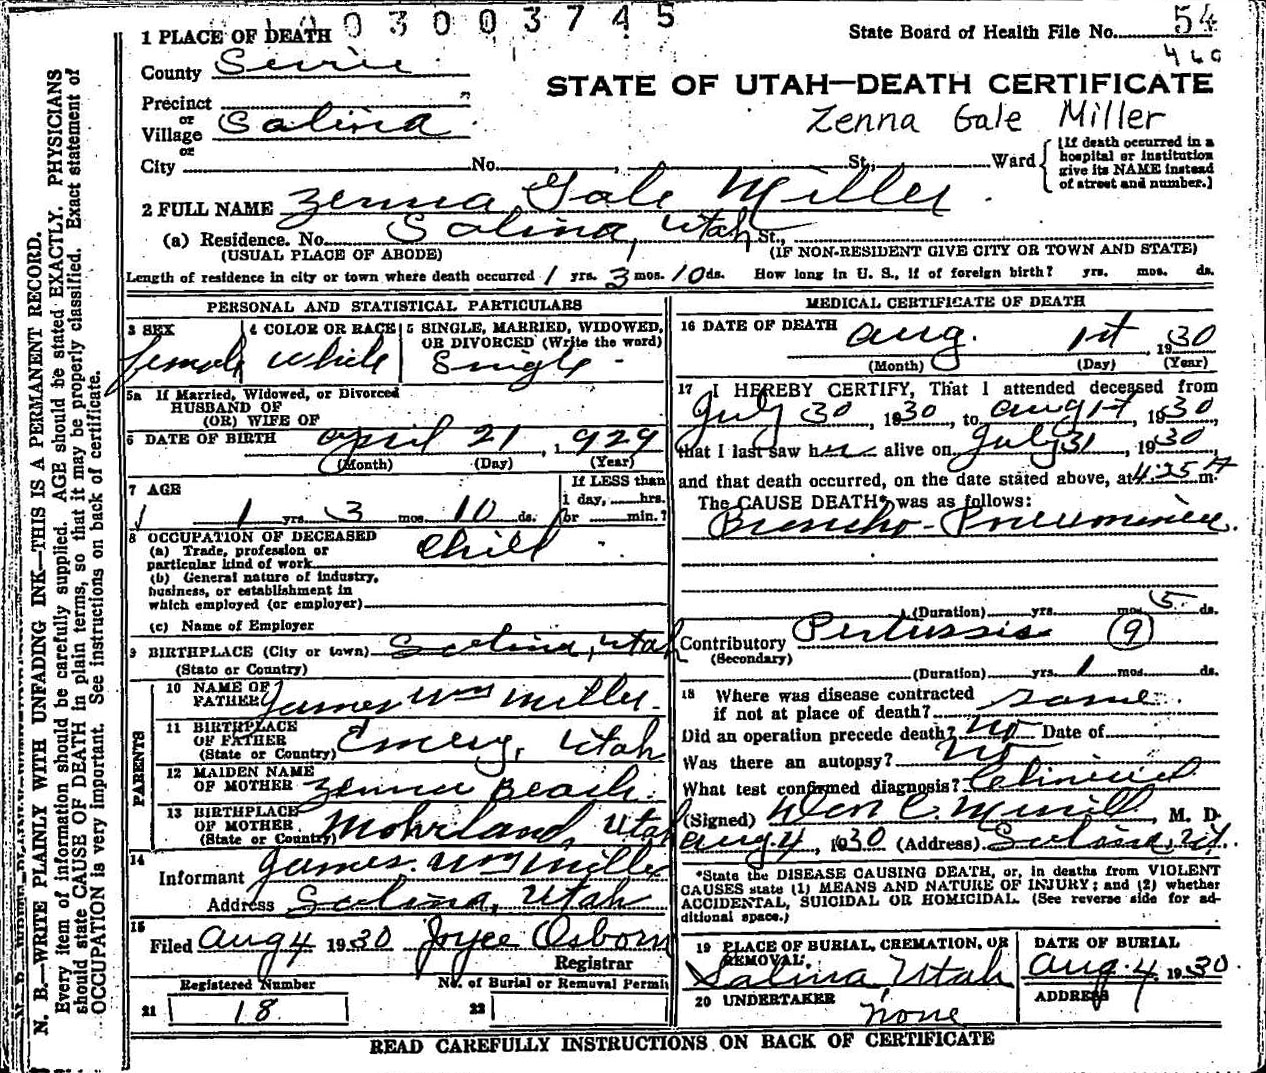 03003745
1 PLACE OF DEATH
State Board of Health File No. 54
460
County Sevier
STATE OF UTAH—DEATH CERTIFICATE
Precinct
or
Village Salina
Zenna Gale Miller
or
City No. St., Ward
[If death occurred in a
hospital or institution
give its NAME instead
of street and number.]
2 FULL NAME Zenna Gale Miller
(a) Residence. No. Salina, Utah St.,
(USUAL PLACE OF ABODE) (IF NON-RESIDENT GIVE CITY OR TOWN AND STATE)
Length of residence in city or town where death occurred 1 yrs. 3 mos. 10 ds. How long in U. S., if of foreign birth? yrs. mos. ds.
PERSONAL AND STATISTICAL PARTICULARS
3 SEX female
4 COLOR OR RACE White
5 SINGLE, MARRIED, WIDOWED,
OR DIVORCED (Write the word)
Single
5a If Married, Widowed, or Divorced
HUSBAND OF
(OR) WIFE OF
6 DATE OF BIRTH April 21, 1929
(Month) (Day) (Year)
7 AGE
1 yrs. 3 mos. 10 ds.
If LESS than
1 day, hrs.
or min.?
8 OCCUPATION OF DECEASED
(a) Trade, profession or
particular kind of work Child
(b) General nature of industry,
business, or establishment in
which employed (or employer)
(c) Name of Employer
9 BIRTHPLACE (City or town) Salina, Utah
(State or Country)
PARENTS
10 NAME OF
FATHER James Wm Miller
11 BIRTHPLACE
OF FATHER
(State or Country) Emery, Utah
12 MAIDEN NAME
OF MOTHER Zenna Beach
13 BIRTHPLACE
OF MOTHER
(State or Country) Mohrland, Utah
14
Informant James Wm Miller
Address Salina, Utah
15
Filed Aug 4 1930 Joyce Osborn
Registrar
Registered Number No. of Burial or Removal Permit
21 18 22
MEDICAL CERTIFICATE OF DEATH
16 DATE OF DEATH
Aug. 1st, 1930
(Month) (Day) (Year)
17 I HEREBY CERTIFY, That I attended deceased from
July 30, 1930, to Aug 1st, 1930,
that I last saw her alive on July 31, 1930,
and that death occurred, on the date stated above, at 4:25 A m.
The CAUSE DEATH* was as follows:
Broncho-Pneumonia.
(Duration) yrs. mos. 5 ds.
Contributory Pertussis 9
(Secondary)
(Duration) yrs. 1 mos. ds.
18 Where was disease contracted
if not at place of death? Same
Did an operation precede death? No Date of
Was there an autopsy? No
What test confirmed diagnosis? Clinical
(Signed) Don C. Merrill, M. D.
Aug 4, 1930 (Address) Salina, Ut.
*State the DISEASE CAUSING DEATH, or, in deaths from VIOLENT
CAUSES state (1) MEANS AND NATURE OF INJURY; and (2) whether
ACCIDENTAL, SUICIDAL OR HOMICIDAL. (See reverse side for ad-
ditional space.)
19 PLACE OF BURIAL, CREMATION, OR
REMOVAL
Salina, Utah
DATE OF BURIAL
Aug. 4, 1930.
20 UNDERTAKER
none
ADDRESS
READ CAREFULLY INSTRUCTIONS ON BACK OF CERTIFICATE
N. B.—WRITE PLAINLY WITH UNFADING INK—THIS IS A PERMANENT RECORD.
Every item of information should be carefully supplied. AGE should be stated EXACTLY. PHYSICIANS
should state CAUSE OF DEATH in plain terms, so that it may be properly classified. Exact statement of
OCCUPATION is very important. See instructions on back of certificate.